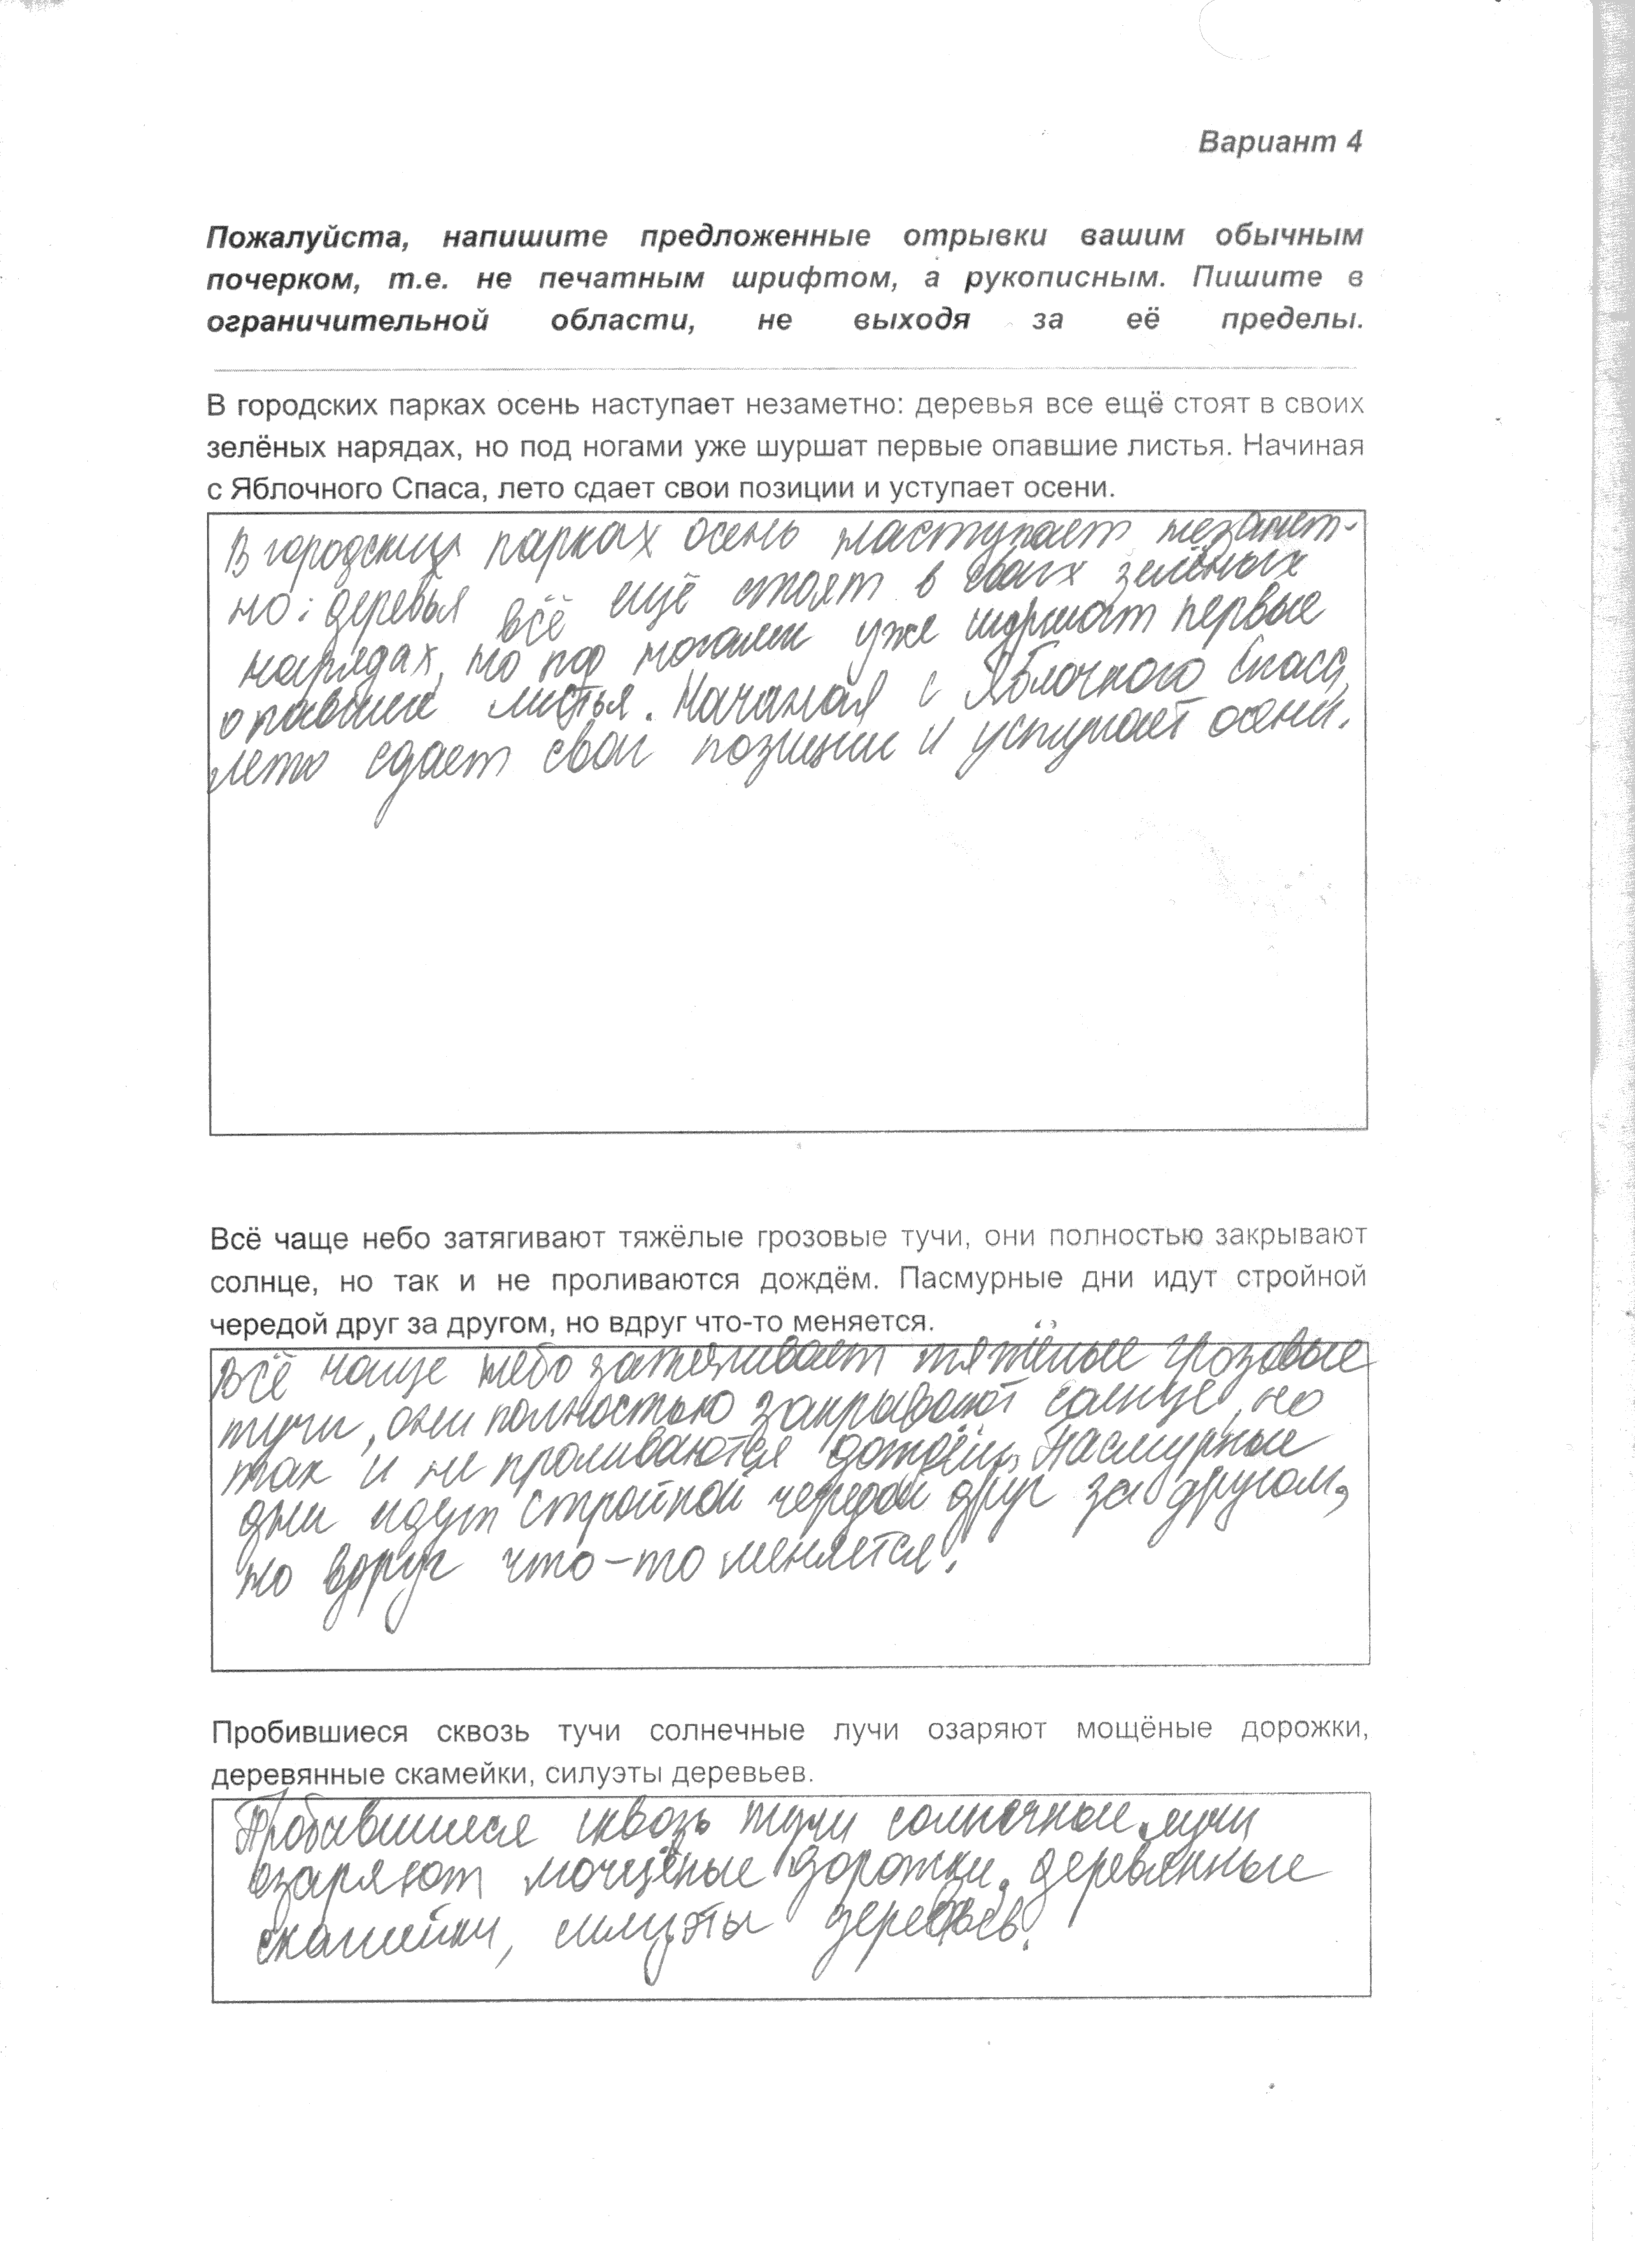 Вариант 4
Пожалуйста, напишите предложенные отрывки вашим обычным
почерком, т.е. не печатным шрифтом, а рукописным. Пишите в
ограничительной области, не выходя за её пределы.
В городских парках осень наступает незаметно: деревья все ещё стоят в своих
зелёных нарядах, но под ногами уже шуршат первые опавшие листья. Начиная
с Яблочного Спаса, лето сдает свои позиции и уступает осени.
В городских парках осень наступает незамет-
но: деревья всё ещё стоят в своих зелёных
нарядах, но под ногами уже шуршат первые
опавшие листья. Начиная с Яблочного Спаса,
лето сдает свои позиции и уступает осени.
Всё чаще небо затягивают тяжёлые грозовые тучи, они полностью закрывают
солнце, но так и не проливаются дождём. Пасмурные дни идут стройной
чередой друг за другом, но вдруг что-то меняется.
Всё чаще небо затягивает тяжёлые грозовые
тучи, они полностью закрывают солнце, но
так и не проливаются дождём. Пасмурные
дни идут стройной чередой друг за другом,
но вдруг что-то меняется.
Пробившиеся сквозь тучи солнечные лучи озаряют мощёные дорожки,
деревянные скамейки, силуэты деревьев.
Пробившиеся сквозь тучи солнечные лучи
озаряют мощёные дорожки, деревянные
скамейки, силуэты деревьев.